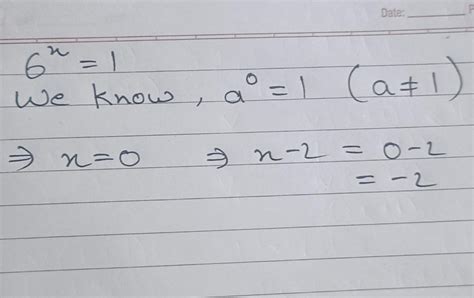 Date:
6ˣ = 1
We know, a⁰ = 1 (a ≠ 1)
⇒ x = 0 ⇒ x - 2 = 0 - 2
= -2